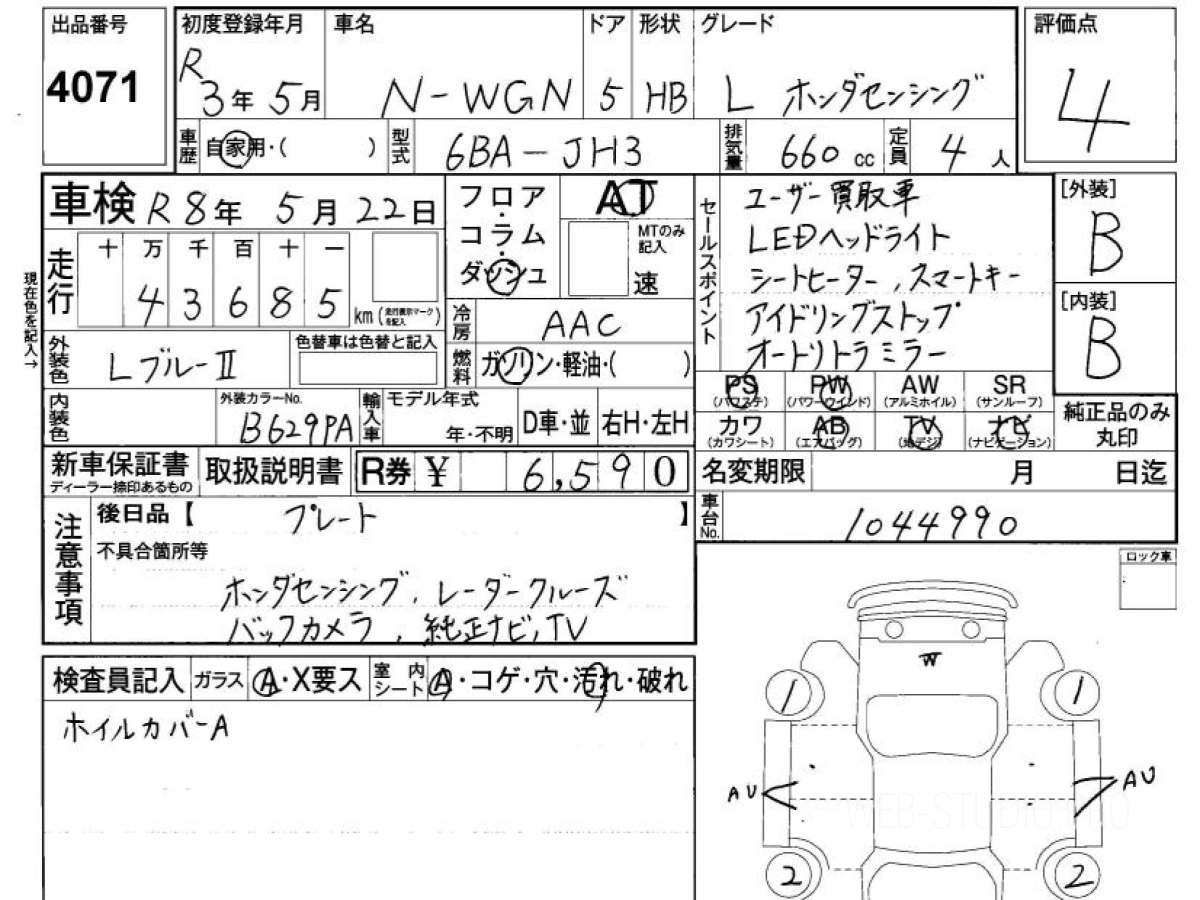 出品番号 初度登録年月 車名 ドア 形状 グレード 評価点
4071 R3年5月 N-WGN 5 HB L ホンダセンシング 4
車歴 自家用・( ) 型式 6BA-JH3 排気量 660 cc 定員 4人
車検 R8年 5月 22日 フロア・コラム・ダッシュ AT セールスポイント ユーザー買取車 [外装]
LEDヘッドライト B
走行 十 万 千 百 十 一 MTのみ記入 シートヒーター、スマートキー
4 3 6 8 5 km (走行表示マークを記入) 速 アイドリングストップ [内装]
現在色を記入→ 冷房 AAC オートリトラミラー B
外装色 Lブルー II 色替車は色替と記入 燃料 ガソリン・軽油・( )
PS (パワステ) PW (パワーウインド) AW (アルミホイル) SR (サンルーフ)
内装色 外装カラーNo. B629PA 輸入車 モデル年式 年・不明 D車・並 右H・左H カワ (カワシート) AB (エアバッグ) TV (地デジ) ナビ (ナビゲーション) 純正品のみ丸印
新車保証書 ディーラー捺印あるもの 取扱説明書 R券 ¥ 6,590 名変期限 月 日迄
注意事項 後日品【 プレート 】 車台No. 1044990
不具合箇所等 ロック車
ホンダセンシング、レーダークルーズ
バックカメラ、純正ナビ、TV
検査員記入 ガラス A・X要ス 室内シート A・コゲ・穴・汚れ・破れ
ホイルカバーA
W
1 1
AU AU
WEB-STUDIO.PRO
2 2